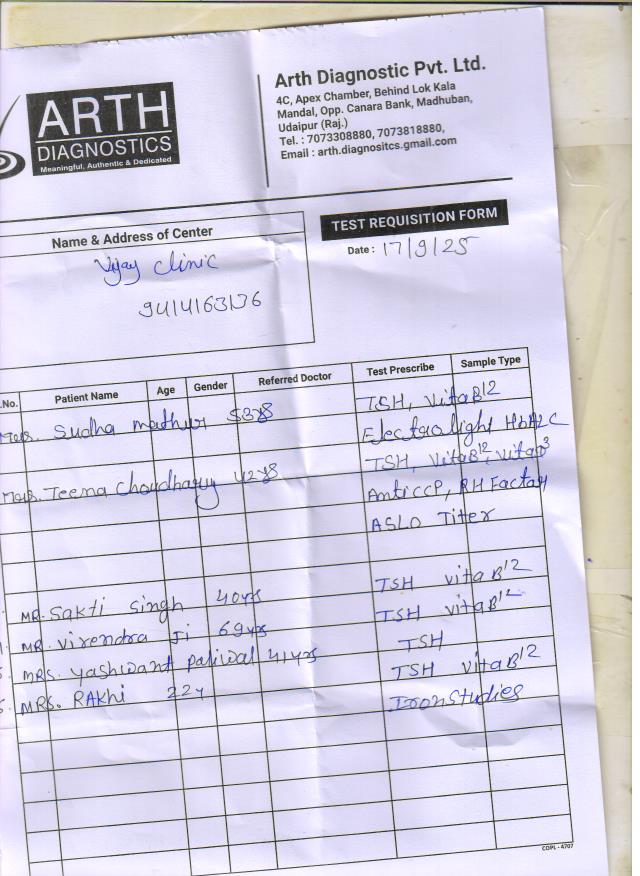 ARTH
DIAGNOSTICS
Meaningful, Authentic & Dedicated
Arth Diagnostic Pvt. Ltd.
4C, Apex Chamber, Behind Lok Kala
Mandal, Opp. Canara Bank, Madhuban,
Udaipur (Raj.)
Tel. : 7073308880, 7073818880,
Email : arth.diagnositcs.gmail.com
TEST REQUISITION FORM
Date : 17/9/25
Name & Address of Center
Vijay clinic
9414163136
.No. Patient Name Age Gender Referred Doctor Test Prescribe Sample Type
Mrs. Sudha mathur 53yrs TSH, VitaB12
Electrolight HbA1C
Mrs. Teena Choudhary 42yrs TSH, VitaB12, VitaD3
Anti CCP, RH Factor
ASLO Titer
MR. Sakti Singh 40yrs TSH vitaB12
MR. Virendra Ji 69yrs TSH vitaB12
MRS. yashwant paliwal 41yrs TSH
MRS. RAKhi 22y TSH vitaB12
Iron Studies
COPL - 4707